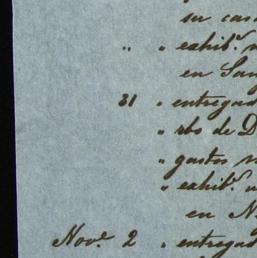 su casa
" " exhib.n
en San
31 " entregad
" rbo de D
" gastos
" exhib.n
en N
Nov.e 2 " entregad